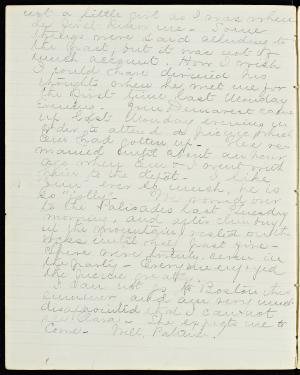 not a little girl as I was when
he first knew me. Some
things were said alluding to
the past, but it was not of
much account. How I wish
I could have divined his
thoughts when he met me for
the first time last Monday
evening. Guy Demarest came
up last Monday evening in
order to attend a picnic which
had gotten up. He re-
mained until about an hour
ago when & I went with
him to the depot. I like
Guy ever so much, he is
so jolly. We rowed over
to the Palisades last Tuesday
morning, and after climbing
up the mountains rested on the
rocks until half past five.
There were twenty seven in
the party. Every one enjoyed
the picnic
I am not to go to Boston this
summer and am very much
disappointed that I can not
see Clara. She expects me to
come. Will,